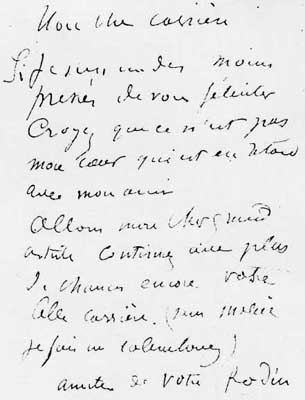 Mon cher Carrière
Si je suis un des moins
pressés de vous féliciter
Croyez que ce n'est pas
mon cœur qui est en retard
avec mon ami
Allons mon cher grand
artiste Continuez avec plus
de chances encore votre
belle carrière. (sans malice
je fais un calembour)
amitiés de votre Rodin